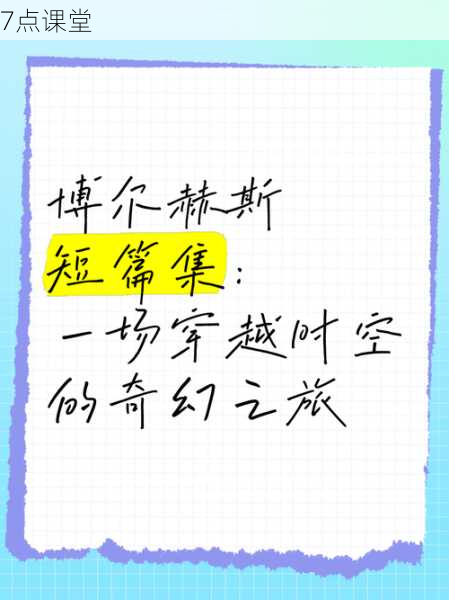 7点课堂
博尔赫斯
短篇集：
一场穿越时空
的奇幻之旅